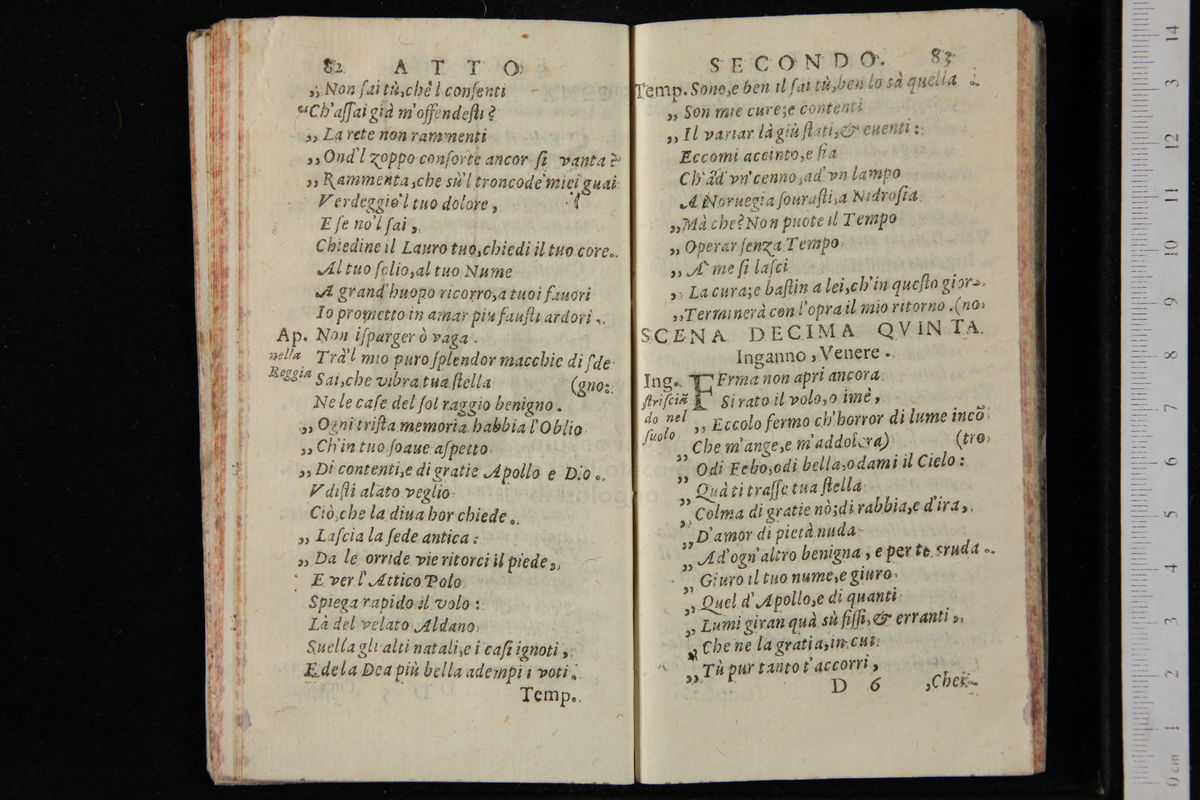 82 ATTO
„ Non ſai tù, che'l conſenti
“Ch'aſſai già m'offendeſti?
„ La rete non rammenti
„ Ond'l zoppo conſorte ancor ſi vanta?
„ Rammenta, che sù'l tronco de' miei guai
Verdeggio'l tuo dolore,
E ſe no'l ſai,
Chiedine il Lauro tuo, chiedi il tuo core.
Al tuo ſolio, al tuo Nume
A grand'huopo ricorro, a tuoi fauori
Io prometto in amar piu fauſti ardori.
Ap. Non iſparger ò vaga
nella Trà'l mio puro ſplendor macchie di ſde
Reggia Sai, che vibra tua ſtella (gno:
Ne le caſe del ſol raggio benigno.
„ Ogni triſta memoria habbia l'Oblio
„ Ch'in tuo ſoaue aſpetto
„ Di contenti, e di gratie Apollo e Dio.
Vdiſti alato veglio
Ciò, che la diua hor chiede.
„ Laſcia la ſede antica:
„ Da le orride vie ritorci il piede,
E ver l'Attico Polo
Spiega rapido il volo:
Là del velato Aldano
Suella gli alti natali, e i caſi ignoti,
E de la Dea più bella adempi i voti.
Temp.
SECONDO. 83
Temp. Sono, e ben il ſai tù, ben lo sà quella
„ Son mie cure; e contenti
„ Il variar là giù ſtati, & euenti:
Eccomi accinto, e fia
Ch'ad vn'cenno, ad' vn lampo
A Noruegia ſouraſti, a Nidroſia
„ Mà che? Non puote il Tempo
„ Operar ſenza Tempo
„ A' me ſi laſci
„ La cura; e baſtin a lei, ch'in queſto gior
„ Terminerà con l'opra il mio ritorno. (no
SCENA DECIMA QVINTA.
Inganno, Venere.
Ing. FErma non apri ancora
ſtriſciã Si rato il volo, o imè,
do nel „ Eccolo fermo ch'horror di lume incõ
ſuolo „ Che m'ange, e m'addolora) (tro
„ Odi Febo, odi bella, odami il Cielo:
„ Quà ti traſſe tua ſtella
„ Colma di gratie nò; di rabbia, e d'ira,
„ D'amor di pietà nuda
„ Ad'ogn'altro benigna, e per te cruda.
„ Giuro il tuo nume, e giuro
„ Quel d'Apollo, e di quanti
„ Lumi giran quà sù fiſſi, & erranti,
„ Che ne la gratia, in cui
„ Tù pur tanto t'accorri,
D 6 „Che